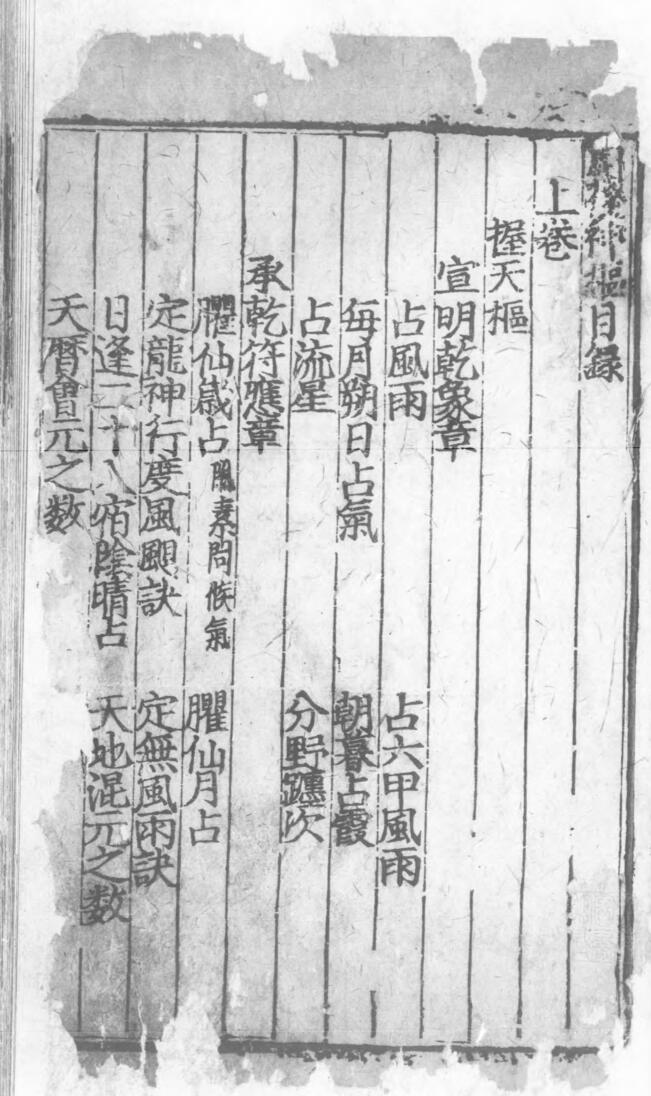 神樞目錄
上卷
握天樞
宣明乾象章
占風雨 占六甲風雨
每月朔日占氣 朝暮占霞
占流星 分野躔次
承乾符應章
臞仙歲占 素問候氣 臞仙月占
定龍神行度風颶訣 定無風雨訣
日逢二十八宿陰晴占 天地混元之数
天曆會元之数